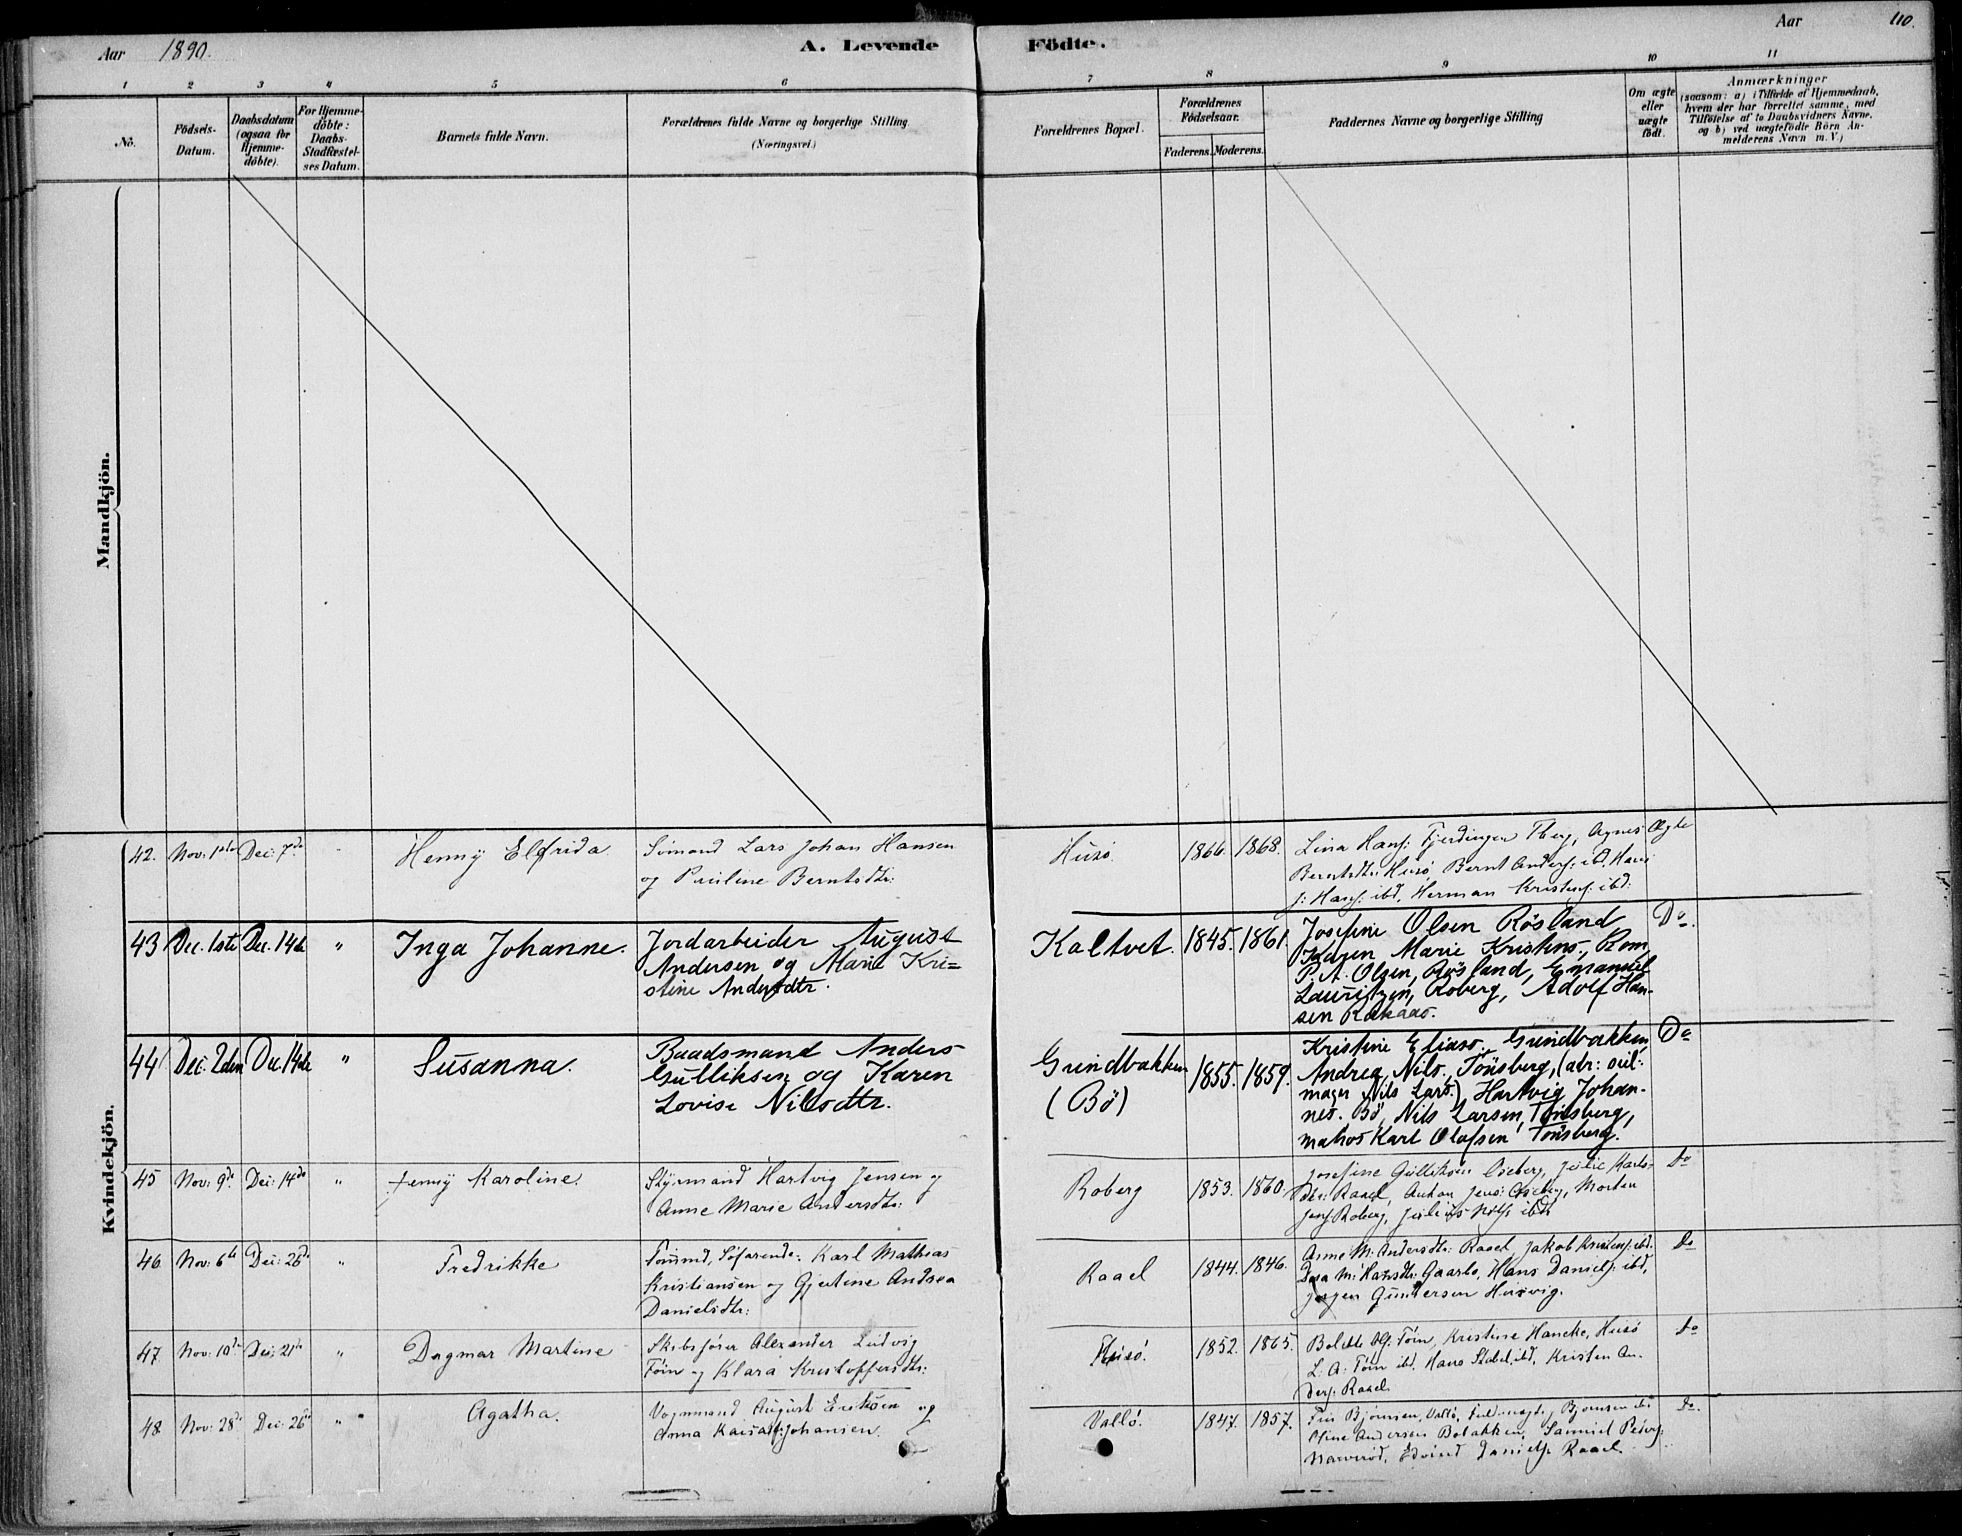 Aar 1890.
A. Levende Födte.
Aar 110.
1 2 3 4 5 6 7 8 9 10 11
No.
Födsels-Datum.
Daabsdatum (ogsaa for Hjemme-döbte).
For Hjemme-döbte: Daabs-Stadfæstel-ses Datum.
Barnets fulde Navn.
Forældrenes fulde Navne og borgerlige Stilling
(Næringsvei.)
Forældrenes Bopæl.
Forældrenes Födselsaar.
Faderens. Moderens.
Faddernes Navne og borgerlige Stilling
Om ægte eller uægte födt.
Anmærkninger
(saasom: a) i Tilfælde af Hjemmedaab,
hvem der har forrettet samme, med
Tilföielse af to Daabsvidners Navne.
og b) ved uægtefödte Börn An-
melderens Navn m. V.)
Mandkjön.
Kvindekjön.
42. Nov: 1ste Dec: 7de Henny Elfrida Sömand Lars Johan Hansen
og Pauline Berntsdtr:
Husö 1866. 1868. Lina Hans: Fjerdingen Tberg, Agnes Ægte
Berntsdtr: Husö, Bernt Anders: ibd, Hans
J: Hans: ibd, Herman Kristens: ibd:
43 Dec. 1ste Dec. 14de " Inga Johanne. Jordarbeider August
Andersen og Marie Kri=
stine Andersdtr.
Kaltvet. 1845. 1861. Josefine Olsen Rösland Do.
Karen Marie Kristens., Rom,
P. A. Olsen, Rösland, Emanuel
Lauritzen, Roberg, Adolf Han-
sen Rakaas.
44 Dec. 2den Dec. 14de " Susanna. Baadsmand Anders
Gulliksen og Karen
Lovise Nilsdtr.
Grindbakken
(Bö)
1855. 1859. Kristine Elias. Grindbakken, Do
Andrea Nils., Tönsberg, (abr: seil-
mager Nils Lars.), Hartvig Johan-
nes. Bö, Nils Larsen, Tönsberg,
Karl Olafsen Tönsberg.
45 Nov: 9de Dec: 14de " Jenny Karoline. Styrmand Hartvig Jensen og
Anne Marie Andersdtr:
Roberg 1853. 1860. Josefine Gulliksen Oseberg, Julie Karls- Do
dtr: Raael, Anton Jens: Oseberg, Morten
Jens: Roberg, Julius ibd.
46 Nov: 6te Dec: 26de " Fredrikke Tömmd, Söfarende: Karl Mathias
Kristiansen og Gjertine Andrea
Danielsdtr:
Raael 1844. 1846. Anne M: Andersdtr: Raael, Jakob Kristens: ibd. Do
M: Hansdtr: Gaarbo, Hans Daniels: ibd,
Jörgen Gundersen Husvig.
47 Nov: 10de Dec: 21de " Dagmar Martine Skibsförer Alexander Ludvig
Töin og Klara Kristoffersdtr:
Husö. 1852. 1865. Bolette Ols: Töin, Kristine Hancke, Husö Do
L. A: Töin ibd, Hans Stabel ibd, Kristen An-
ders: Raael.
48 Nov: 28de Dec: 26de " Agatha. Vognmand August Eriksen og
Anna Kaisa Johansen.
Vallö. 1847. 1857. Björnsen, Vallö, Björnsen ibd Do.
Oline Andersen Bolakken, Samuel Peders:
Narveröd, Edvind Daniels: Raael.